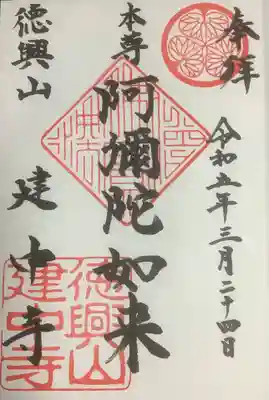 奉拝
令和五年三月二十四日
本寺
阿彌陀如来
徳興山
建中寺
徳興山
建中寺